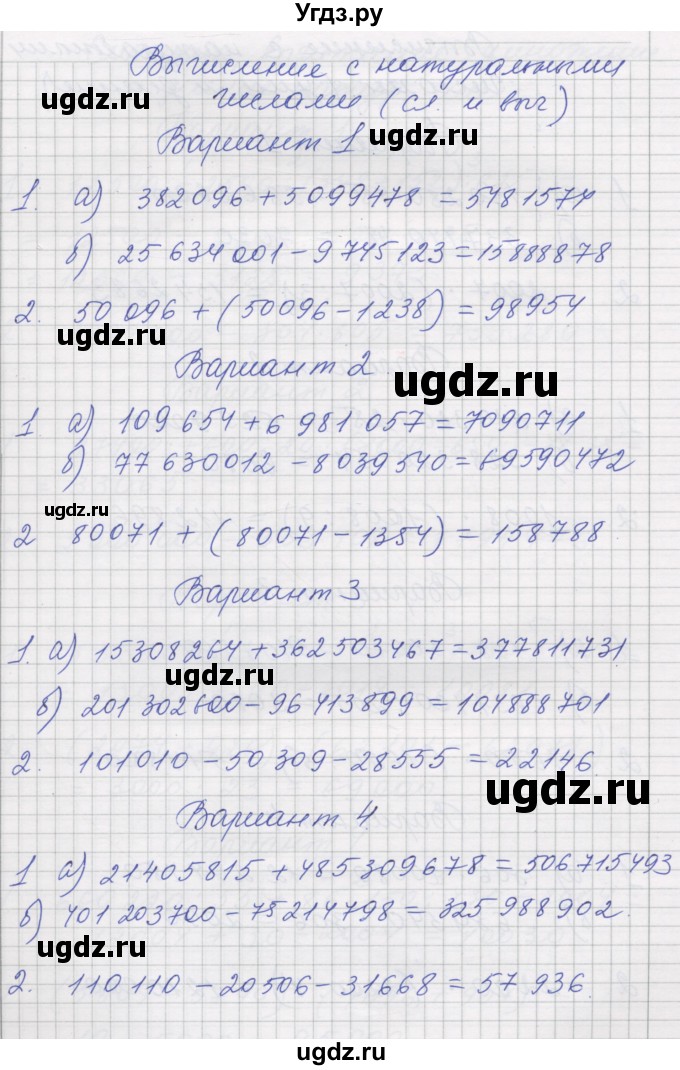 Угдз.ру
Вычисление с натуральными
числами (сл. и выч)
ugdz.ru ugdz.ru
Вариант 1
1. а) 382096 + 5099478 = 5481574
б) 25 634 001 - 9 745 123 = 15888878
2. 50 096 + (50096 - 1238) = 98954
ugdz.ru
Вариант 2
ugdz.ru
1 а) 109 654 + 6 981 057 = 7090711
б) 77 630012 - 8039540 = 69590472
ugdz.ru
2 80071 + (80071 - 1354) = 158788
Вариант 3
1. а) 15308264 + 362503467 = 377811731
ugdz.ru
б) 201 302600 - 96 413899 = 104888701
2. 101010 - 50 309 - 28555 = 22146
ugdz.ru
Вариант 4
1 а) 21405815 + 485309678 = 506715493
б) 401 203700 - 75214798 = 325 988 902
ugdz.ru
2. 110 110 - 20506 - 31668 = 57 936
ugdz.ru